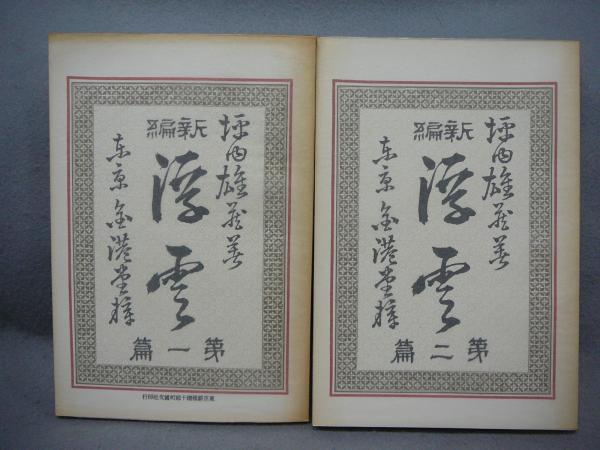 坪内雄蔵著
新編
浮雲
東京 金港堂梓
第一篇
坪内雄蔵著
新編
浮雲
東京 金港堂梓
第二篇